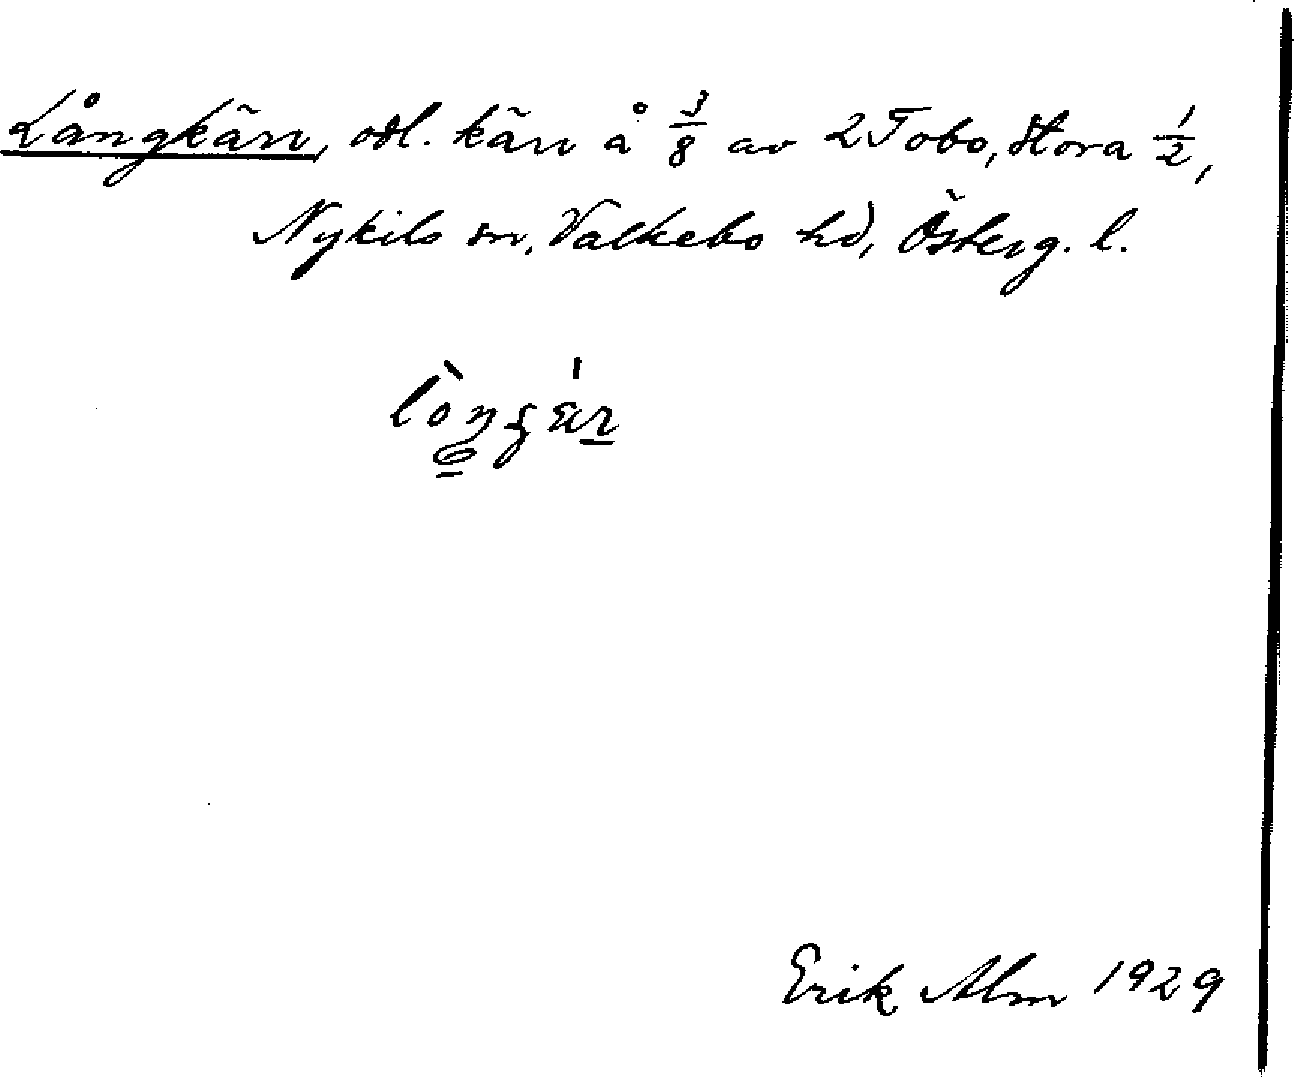 Långkärr, odl. kärr å 3/8 av 2 Tobo, Stora 1/2,
Nykils sn, Valkebo hd, Österg. l.
Erik Alm 1929